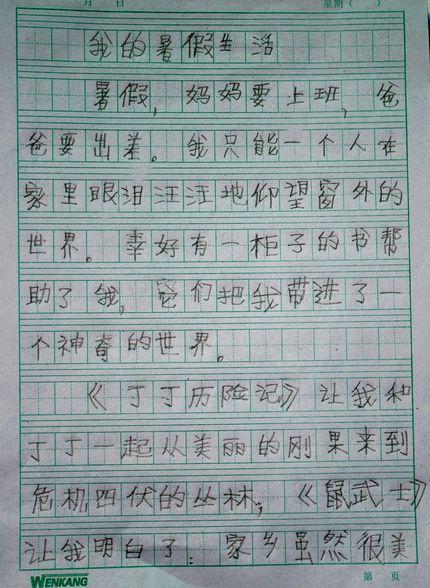 月 日 星期( )
我的暑假生活
暑假,妈妈要上班,爸
爸要出差。我只能一个人在
家里眼泪汪汪地仰望窗外的
世界。幸好有一柜子的书帮
助了我,它们把我带进了一
个神奇的世界。
《丁丁历险记》让我和
丁丁一起从美丽的刚果来到
危机四伏的丛林;《鼠武士》
让我明白了:家乡虽然很美
WENKANG 第 页